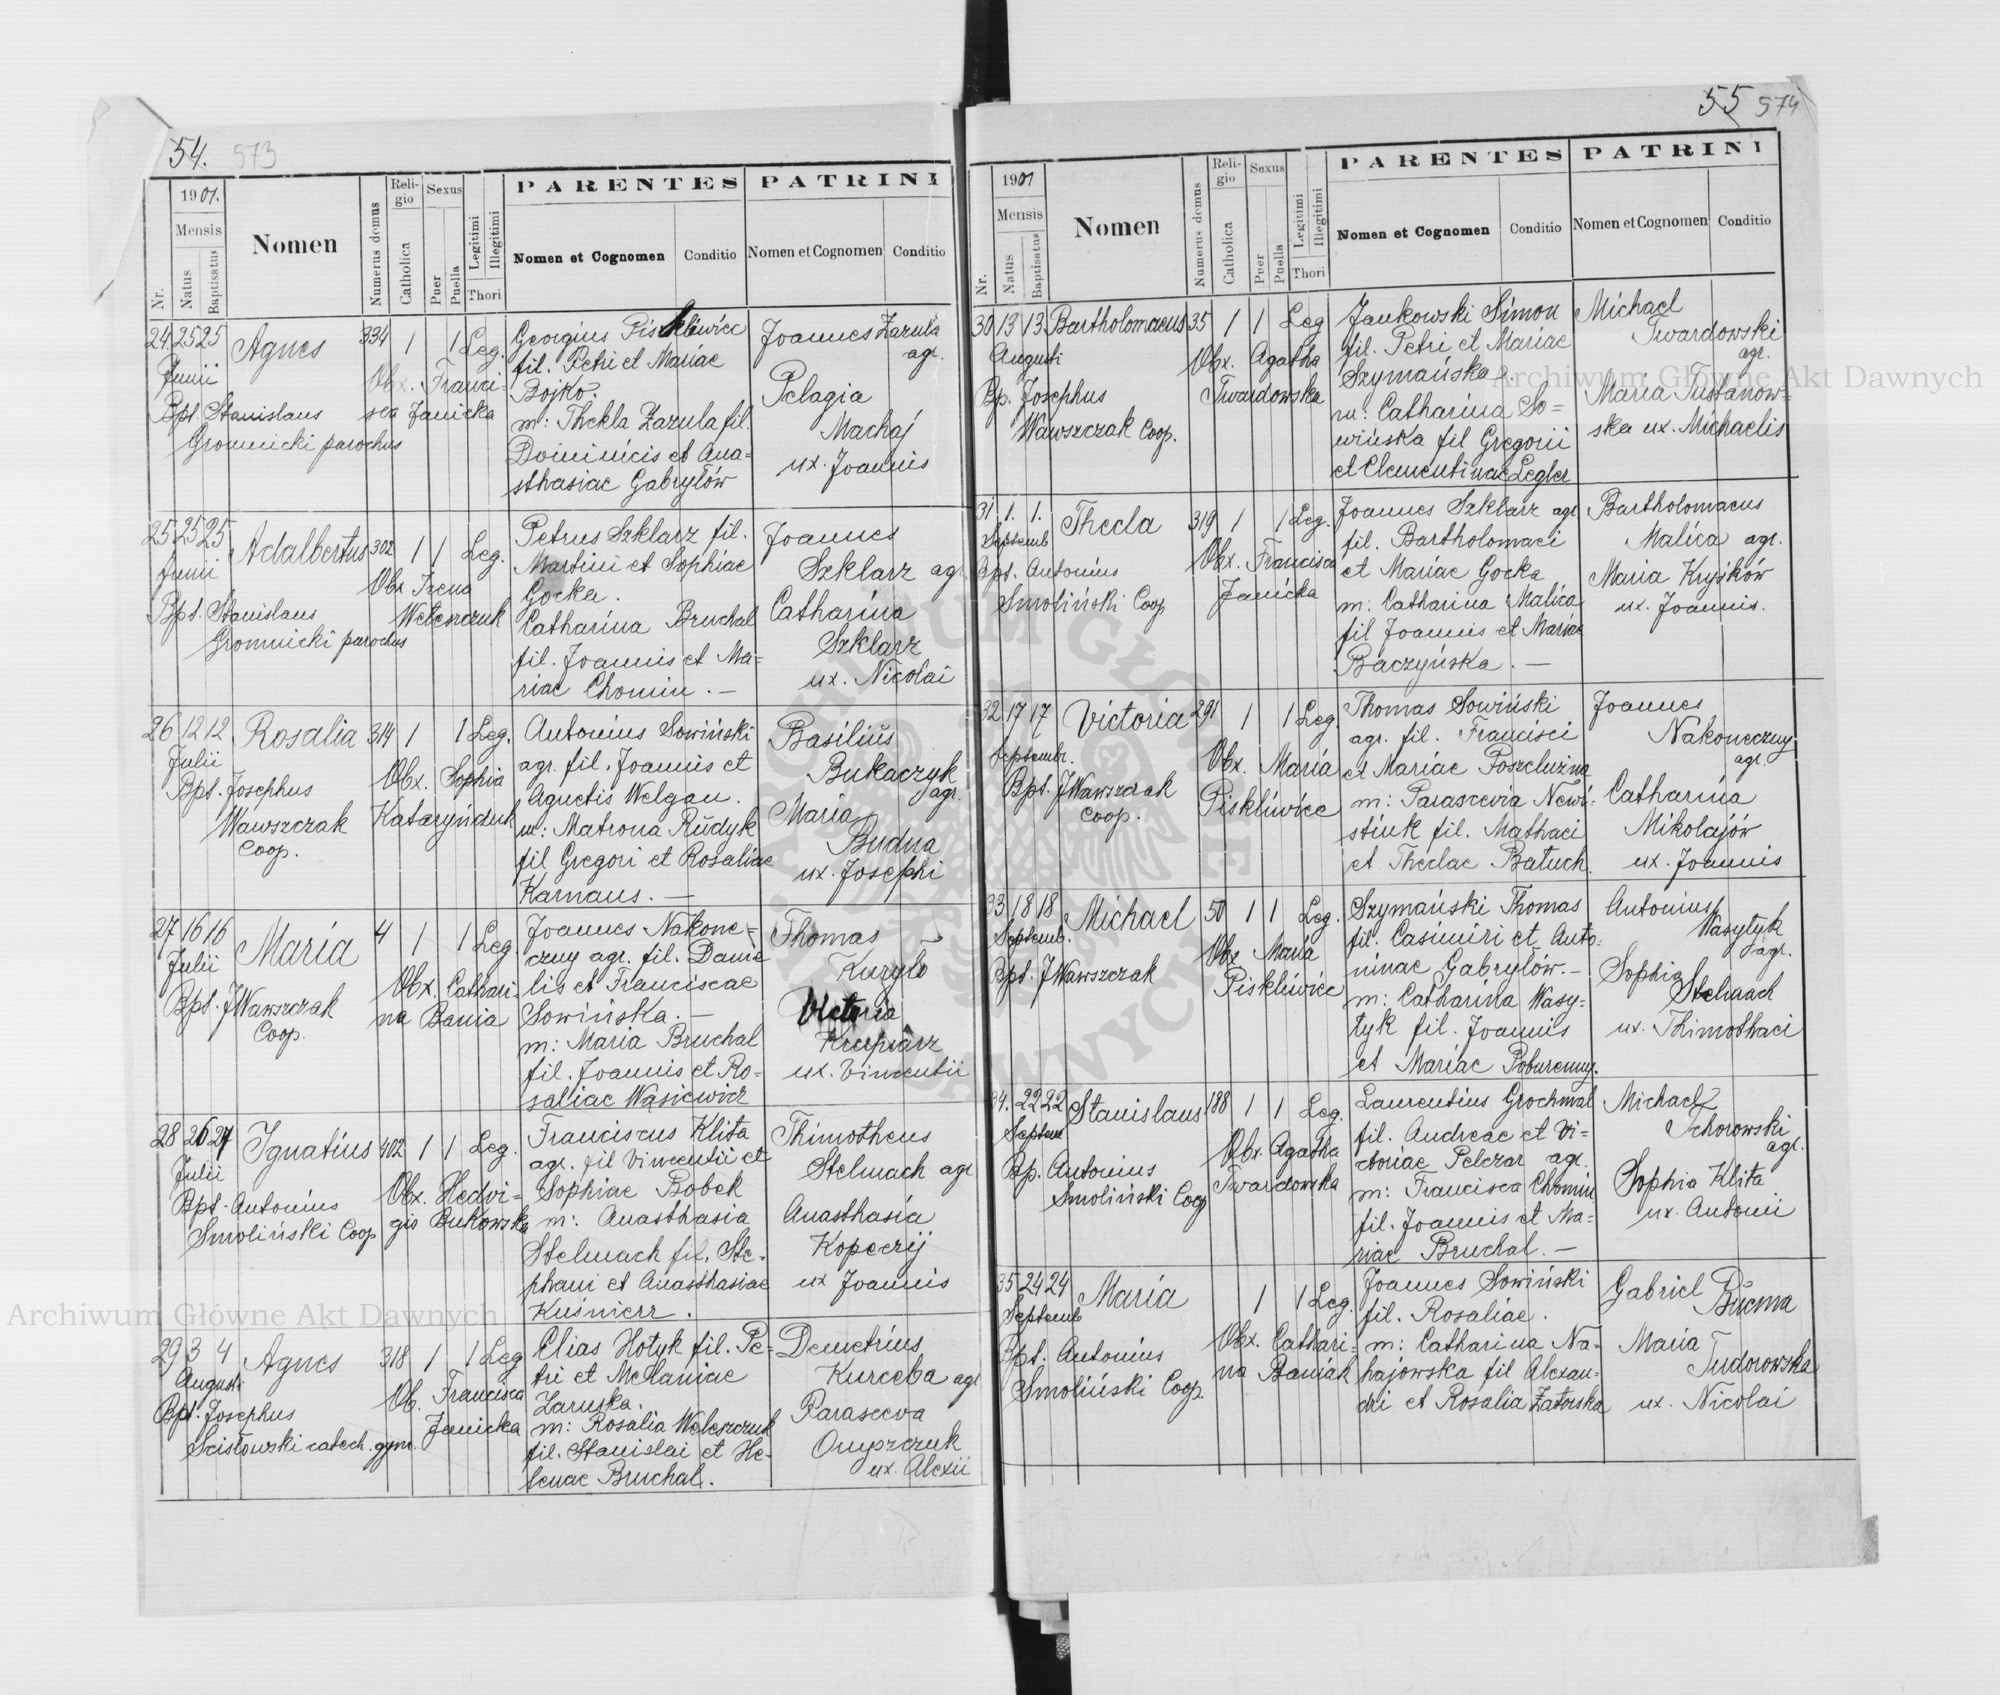 54. 573
1901.
Mensis
Nr.
Natus
Baptisatus
Nomen
Numerus domus
Religio
Catholica
Sexus
Puer
Puella
Legitimi
Illegitimi
Thori
PARENTES
Nomen et Cognomen
Conditio
PATRINI
Nomen et Cognomen
Conditio
24. 25 25 Agnes 334 1 1 Leg.
Junii
Obx. Franci-
sca Janicka
Bpt. Stanislaus
Gromnicki parochus
Georgius Pisklewicz
fil. Petri et Mariae
Bojko.
m: Thekla Zazula fil.
Dominicis et Ana=
sthasiae Gabryłów
Joannes Zazula
agr.
Pelagia
Machaj
ux. Joannis
25 25 25 Adalbertus 302 1 1 Leg.
Junii
Obx Irena
Weleszczuk
Bpt. Stanislaus
Gromnicki parochus
Petrus Szklarz fil.
Martini et Sophiae
Gocka.
Catharina Bruchal
fil. Joannis et Ma-
riae Chomin. —
Joannes
Szklarz agr
Catharina
Szklarz
ux. Nicolai
26 12 12 Rosalia 314 1 1 Leg.
Julii
Obx. Sophia
Bpt. Josephus
Wawszczak
Coop.
Antonius Sowiński
agr. fil. Joannis et
Agnetis Welgan.
m: Matrona Rudyk
fil Gregori et Rosaliae
Karnaus. —
Basilius
Bukaczyk
agr.
Maria
Budna
ux. Josephi
27 16 16 Maria 4 1 1 Leg
Julii
Obx. Cathari-
na Bania
Bpt. J Wawszczak
Coop.
Joannes Nakone=
czny agr. fil. Danie
lis et Franciscae
Sowińska. —
m: Maria Bruchal
fil. Joannis et Ro=
saliae Wąsiewicz
Thomas
Kuryło
Victoria
Krupiarz
ux. Vincentii
28 26 27 Ignatius 402 1 1 Leg.
Julii
Obx. Hedvi-
gis Bukowska
Bpt. Antonius
Smoliński Coop
Franciscus Klita
agr. fil Vincentii et
Sophiae Bobek
m: Anasthasia
Stelmach fil. Ste-
phani et Anasthasiae
Kuśnierz.
Thimotheus
Stelmach agr
Anasthasia
Kopeczij
ux Joannis
29 3 4 Agnes 318 1 1 Leg
Augusti
Ob. Francisca
Janicka
Bpt. Josephus
Scisłowski catech. gym.
Elias Hotyk fil. Pe-
tri et Melaniae
Zaruska.
m: Rosalia Weleszczuk
fil. Stanislai et He-
lenae Bruchal.
Demetrius
Kurceba agr
Parasceva
Onyszczuk
ux. Alexii
55 574
1901
Mensis
Nr.
Natus
Baptisatus
Nomen
Numerus domus
Religio
Catholica
Sexus
Puer
Puella
Legitimi
Illegitimi
Thori
PARENTES
Nomen et Cognomen
Conditio
PATRINI
Nomen et Cognomen
Conditio
30 13 13 Bartholomaeus 35 1 1 Leg
Augusti
Obx. Agatha
Twardowska
Bp. Josephus
Wawszczak Coop.
Jankowski Simon
fil. Petri et Mariae
Szymańska
m: Catharina So=
wińska fil Gregorii
et Clementinae Legler
Michael
Twardowski
agr.
Maria Tustanow=
ska ux. Michaelis
31 1. 1. Thecla 319 1 1 Leg.
Septemb
Obx. Francisca
Janicka
Bpt. Antonius
Smoliński Coop
Joannes Szklarz agr
fil. Bartholomaei
et Mariae Gocka
m: Catharina Malica
fil Joannis et Mariae
Baczyńska. —
Bartholomaeus
Malica agr.
Maria Kryśków
ux. Joannis.
32 17 17 Victoria 291 1 1 Leg.
Septembr.
Obx. Maria
Pisklewicz
Bpt. J Wawszczak
Coop.
Thomas Sowiński
agr. fil. Francisci
et Mariae Poszeluzna
m: Parascevia Newi-
stiuk fil. Mathaei
et Theclae Batuch.
Joannes
Nakoneczny
agr.
Catharina
Mikolajów
ux. Joannis
33 18 18 Michael 50 1 1 Leg.
Septemb.
Obx Maria
Pisklewicz
Bpt. J Wawszczak
Szymański Thomas
fil. Casimiri et Anto-
ninae Gabryłów. —
m: Catharina Wasy-
tyk fil. Joannis
et Mariae Poburenny.
Antonius
Wasytyk
agr.
Sophia
Stelmach
ux. Thimothaei
34. 22 22 Stanislaus 188 1 1 Leg.
Septem
Obx. Agatha
Twardowska
Bp. Antonius
Smoliński Coop
Laurentius Grochmal
fil. Andreae et Vi-
ctoriae Pelczar agr.
m: Francisca Chomin
fil. Joannis et Ma=
riae Bruchal. —
Michael
Tchorowski
agr.
Sophia Klita
ux. Antonii
35 24 24 Maria 1 1 Leg.
Septemb
Obx. Cathari-
na Baniak
Bpt. Antonius
Smoliński Coop.
Joannes Sowiński
fil. Rosaliae.
m: Catharina Na-
hajowska fil Alexan-
dri et Rosalia Zatorska
Gabriel Bucma
Maria
Tudorowska
ux. Nicolai
Archiwum Główne Akt Dawnych
Archiwum Główne Akt Dawnych
ARCHIWUM GŁÓWNE AKT DAWNYCH